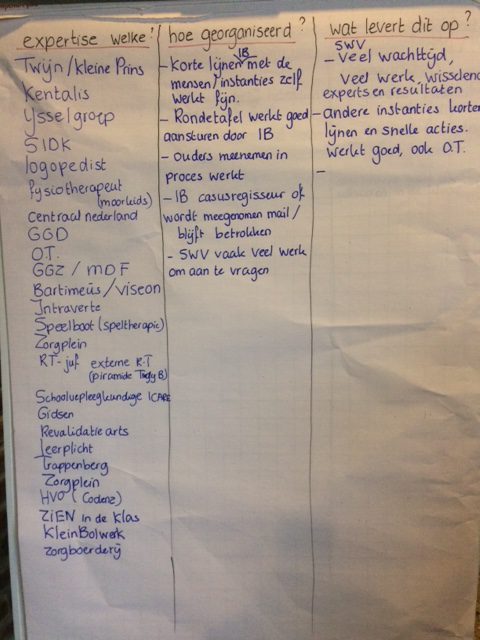 expertise welke?
Twijn/kleine Prins
Kentalis
IJsselgroep
SIDK
logopedist
fysiotherapeut
(moorkids)
Centraal nederland
GGD
O.T.
GGZ / MDF
Bartimeüs/viseon
Intraverte
Speelboot (speltherapie)
Zorgplein
RT-juf externe R.T
(piramide B)
Schoolverpleegkundige ICARE
Gidsen
Revalidatie arts
Leerplicht
Trappenberg
Zorgplein
HVO (Codenz)
ZIEN in de klas
KleinBolwerk
Zorgboerderij
hoe georganiseerd?
IB
- Korte lijnen met de
mensen/instanties zelf
werkt fijn.
- Rondetafel werkt goed
aansturen door IB
- ouders meenemen in
proces werkt
- IB casusregisseur of
wordt meegenomen mail/
blijft betrokken
- SWV vaak veel werk
om aan te vragen
wat levert dit op?
SWV
- Veel wachttijd,
veel werk, wisselende
experts en resultaten
- andere instanties korte
lijnen en snelle acties.
Werkt goed, ook O.T.
-